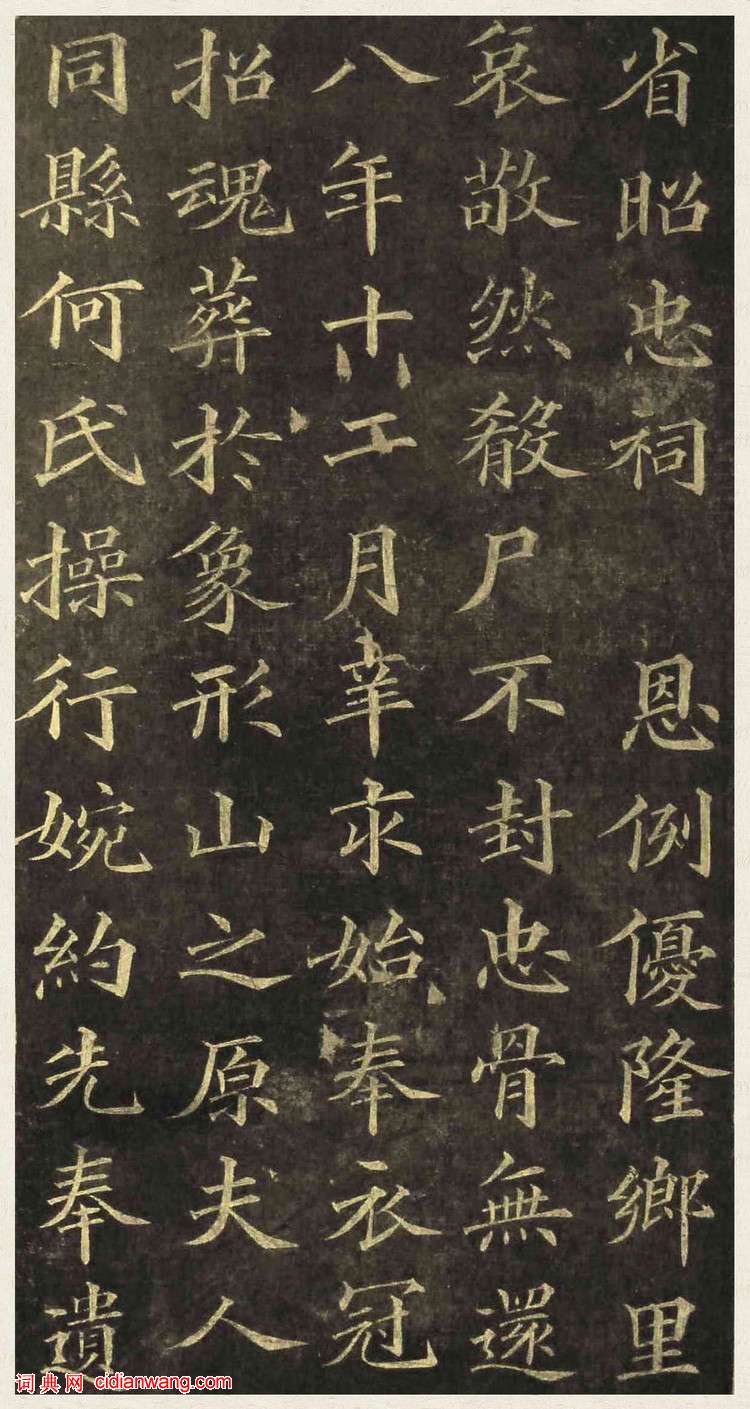 省昭忠祠 恩例優隆鄉里
哀敬然殽尸不封忠骨無還
八年十月始奉衣冠
招魂葬於象形山之原夫人
同縣何氏操行婉約先奉遺
词典网 cidianwang.com